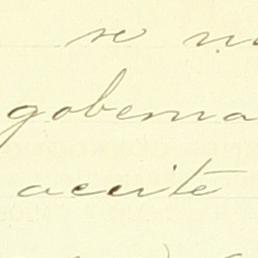 se
goberna
aceite